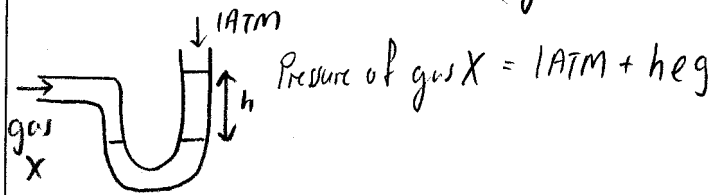 1ATM
Pressure of gas X = 1ATM + hρg
h
gas
X